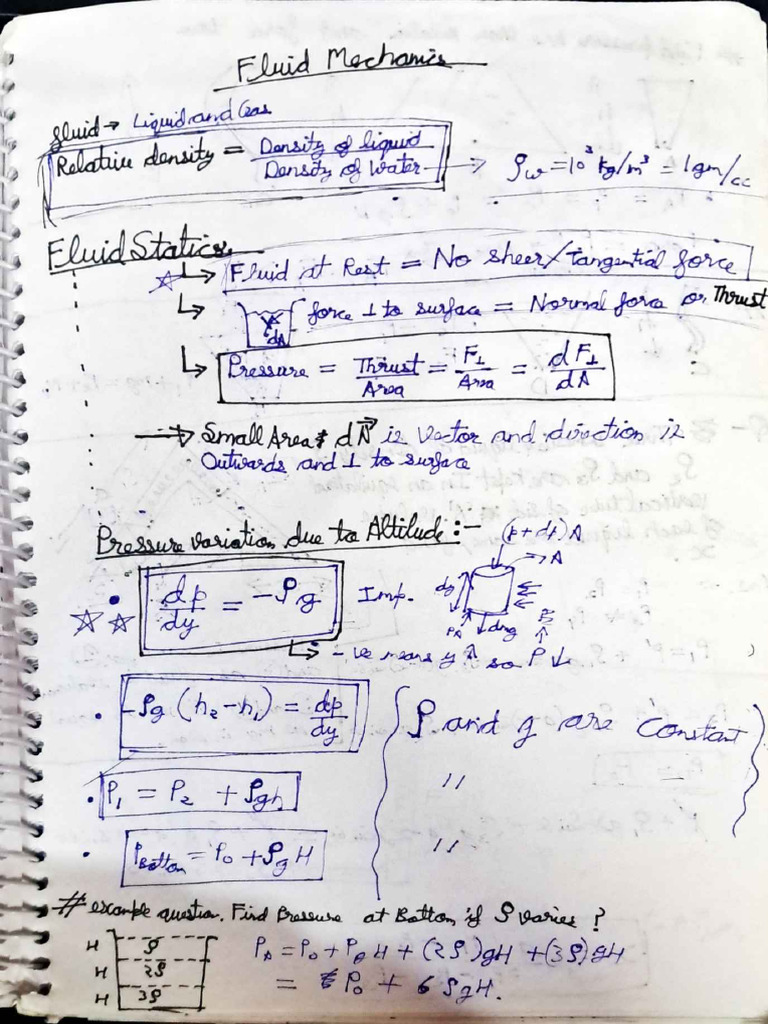 Fluid Mechanics
fluid → Liquid and Gas
Relative density = Density of liquid / Density of Water → ρw = 10³ kg/m³ = 1gm/cc
Fluid Statics
☆ ↳ Fluid at Rest = No sheer/tangential force
↳ dA force ⊥ to surface = Normal force or Thrust
↳ Pressure = Thrust/Area = F⊥/Area = dF⊥/dA
→ Small Area dN⃗ is Vector and direction is
Outwards and ⊥ to surface
Pressure variation due to Altitude :-
(P + dP)A
→ A
• dp/dy = -ρg Imp.
dy
PA ↓ dmg
☆☆ ↳ -ve means y ↑ so P ↓
• -ρg (h₂-h₁) = dp/dy
ρ and g are constant
• P₁ = P₂ + ρgh
" =
• PBottom = P₀ + ρgH
"
# example question. Find Pressure at Bottom if ρ varies ?
H ρ
H 2ρ
H 3ρ
PA = P₀ + PgH + (2ρ)gH + (3ρ)gH
= P₀ + 6ρgH.